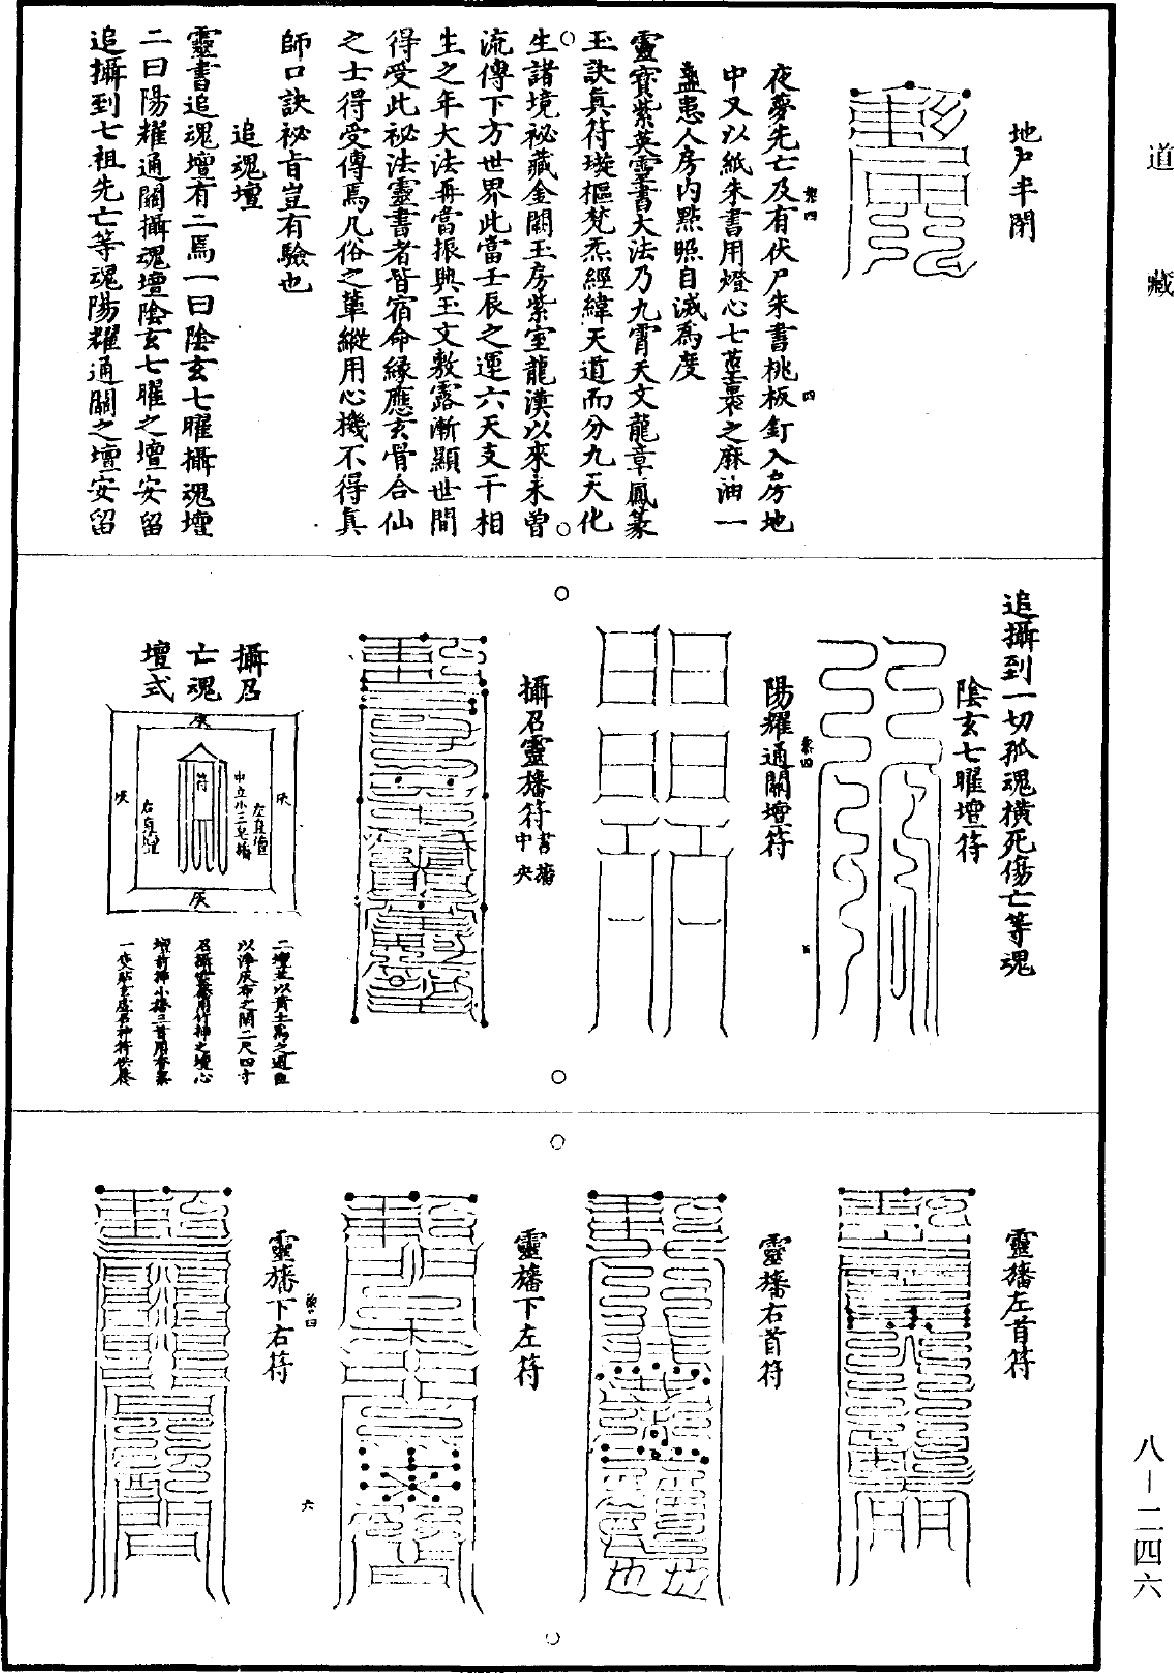 道藏
地戶半閉
夜夢先亡及有伏尸朱書桃板釘入房地
中又以紙朱書用燈心七莖裹之麻油一
盞患人房內點照自滅為度
靈寶紫英靈書大法乃九霄天文龍章鳳篆
玉訣真符璇樞梵炁經緯天道而分九天化
生諸境祕藏金闕玉房紫室龍漢以來未曾
流傳下方世界此當壬辰之運六天支干相
生之年大法再當振興玉文敷露漸顯世間
得受此祕法靈書者皆宿命緣應玄骨合仙
之士得受傳焉凡俗之輩縱用心機不得真
師口訣祕旨豈有驗也
追魂壇
靈書追魂壇有二焉一曰陰玄七曜攝魂壇
二曰陽耀通關攝魂壇陰玄七曜之壇安留
追攝到七祖先亡等魂陽耀通關之壇安留
追攝到一切孤魂橫死傷亡等魂
陰玄七曜壇符
陽耀通關壇符
攝召靈旛符書旛中央
攝召
亡魂
壇式
符
中立小三皂旛
左直壇
右直壇
二壇並以黃土為之週迴
以淨灰布之闊二尺四寸
召攝靈旛用竹插之壇心
壇前插小旛三首用香案
靈旛左首符
靈旛右首符
靈旛下左符
靈旛下右符
六
八－二四六